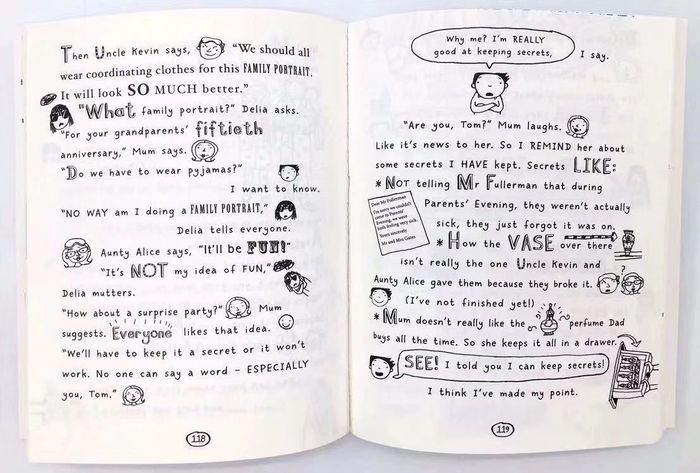 Then Uncle Kevin says, "We should all
wear coordinating clothes for this FAMILY PORTRAIT.
It will look SO MUCH better."
"What family portrait?" Delia asks.
"For your grandparents' fiftieth
anniversary," Mum says.
"Do we have to wear pyjamas?"
I want to know.
"NO WAY am I doing a FAMILY PORTRAIT,"
Delia tells everyone.
Aunty Alice says, "It'll be FUN!"
"It's NOT my idea of FUN,"
Delia mutters.
"How about a surprise party?" Mum
suggests. Everyone likes that idea.
"We'll have to keep it a secret or it won't
work. No one can say a word – ESPECIALLY
you, Tom."
118
Why me? I'm REALLY
good at keeping secrets,
I say.
"Are you, Tom?" Mum laughs.
Like it's news to her. So I REMIND her about
some secrets I HAVE kept. Secrets LIKE:
* NOT telling Mr Fullerman that during
Parents' Evening, they weren't actually
sick, they just forgot it was on.
Dear Mr Fullerman
I'm sorry we couldn't
come to Parents'
Evening, we were
both feeling very sick.
Yours sincerely
Mr and Mrs Gates
* How the VASE over there
isn't really the one Uncle Kevin and
Aunty Alice gave them because they broke it.
?
(I've not finished yet!)
* Mum doesn't really like the perfume Dad
buys all the time. So she keeps it all in a drawer.
SEE! I told you I can keep secrets!
I think I've made my point.
119